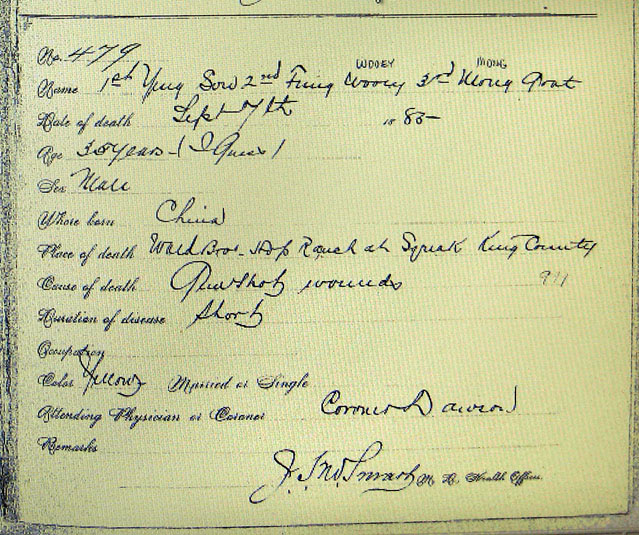 No. 479
WOOEY MONG
Name 1st Yung Sow 2nd Fung Wooey 3rd Mong Goat
Date of death Sept 7th 1885
Age 35 years (I Guess)
Sex Male
Where born China
Place of death Wald Bros. Hop Ranch at Squak King County
Cause of death Gunshot wounds 911
Duration of disease Short
Occupation
Color Yellow Married or Single
Attending Physician or Coroner Coroner Dawson
Remarks
Smart M. D. Health Officer.